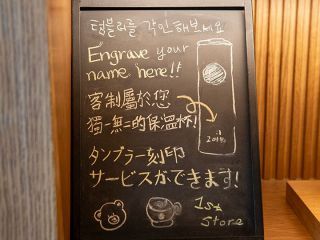 텀블러를 각인해보세요
Engrave your
name here!!
客制屬於您
獨一無二的保溫杯!
タンブラー刻印
サービスができます!
1st
Store